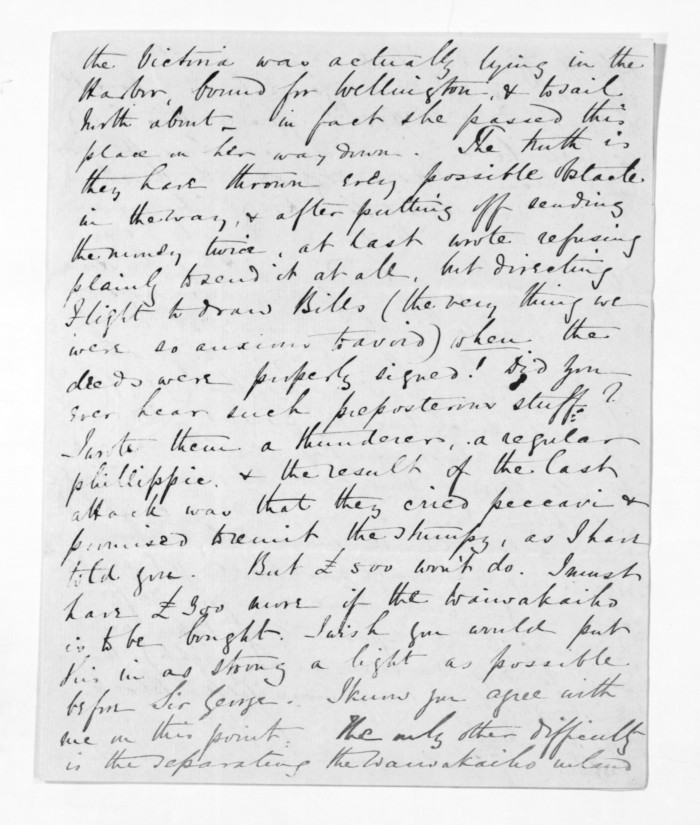 the Victoria was actually lying in the
Harbor, bound for Wellington, & to sail
North about - in fact she passed this
place on her way down. The truth is
they have thrown every possible obstacle
in the way, & after putting off sending
the money twice, at last wrote refusing
plainly to send it at all, but directing
Flight to draw Bills (the very thing we
were so anxious to avoid) when the
deeds were properly signed! Did you
ever hear such preposterous stuff?
I wrote them a thunderer, a regular
phillippic. & the result of the last
attack was that they cried peccavi &
promised to remit the stumpy, as I have
told you. But £500 won't do. I must
have £300 more if the Waiwakaiho
is to be bought. I wish you would put
this in as strong a light as possible
before Sir George. I know you agree with
me on this point. The only other difficulty
is the separating the Waiwakaiho inland